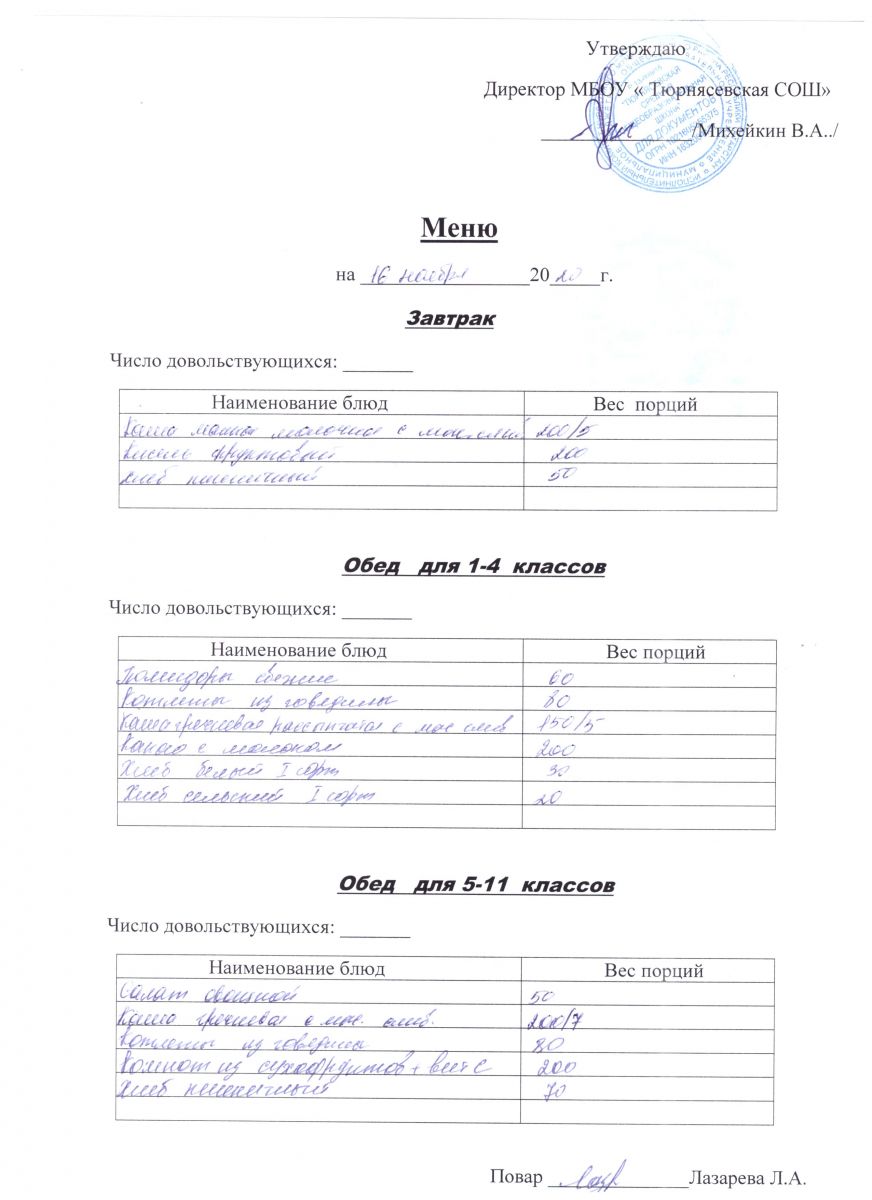 Утверждаю
Директор МБОУ « Тюрнясевская СОШ»
/Михейкин В.А../
ДЛЯ ДОКУМЕНТОВ
Меню
на 16 ноября 2020 г.
Завтрак
Число довольствующихся:
Наименование блюд Вес порций
Каша манная молочная с мас. слив 200/5
Кисель фруктовый 200
Хлеб пшеничный 50
Обед для 1-4 классов
Число довольствующихся:
Наименование блюд Вес порций
Помидоры свежие 60
Котлеты из говядины 80
Каша гречневая рассыпчатая с мас слив 150/5
Какао с молоком 200
Хлеб белый I сорт 30
Хлеб сельский I сорт 20
Обед для 5-11 классов
Число довольствующихся:
Наименование блюд Вес порций
Салат овощной 50
Каша гречневая с мас. слив. 200/7
Котлеты из говядины 80
Компот из сухофруктов + вит С 200
Хлеб пшеничный 70
Повар Лазарева Л.А.